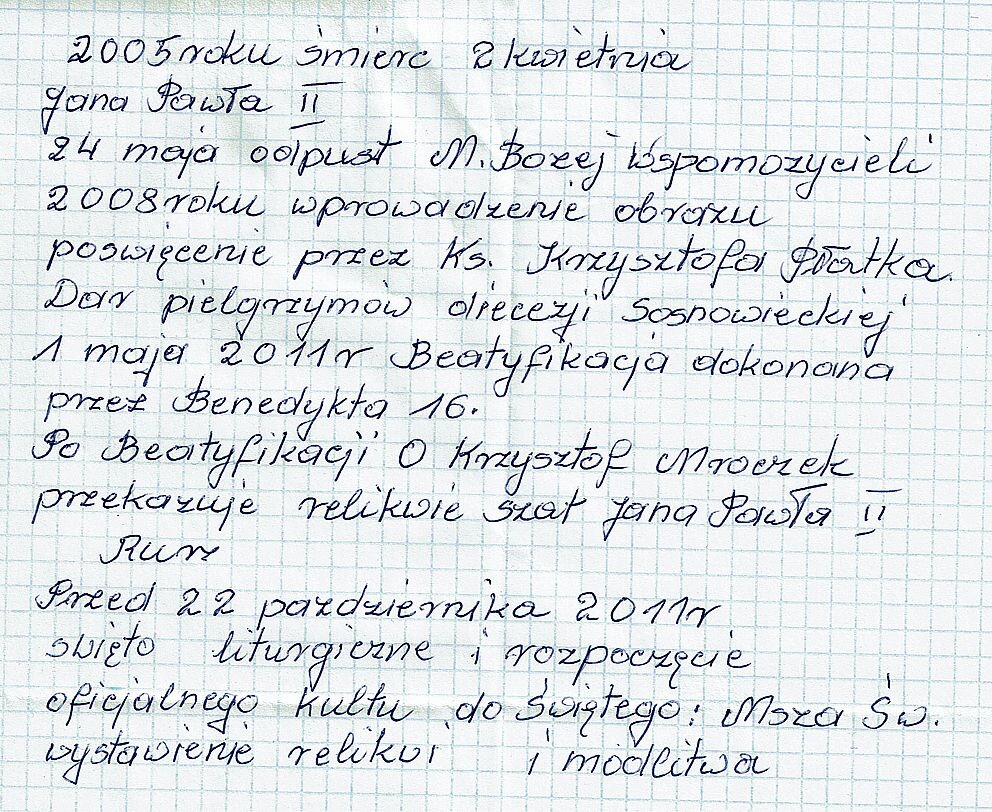 2005 roku śmierc 2 kwietnia
Jana Pawła II
24 maja odpust M. Bożej Wspomozycieli
2008 roku wprowadzenie obrazu
poswięcenie przez Ks. Krzysztofa Płatka.
Dar pielgrzymów diecezji Sosnowieckiej
1 maja 2011r Beatyfikacja dokonana
przez Benedykta 16.
Po Beatyfikacji O Krzysztof Mroczek
przekazuje relikwie szat Jana Pawła II
Przed 22 pazdziernika 2011r
swięto liturgiczne i rozpoczęcie
oficjalnego kultu do Świętego: Msza Św.
wystawienie relikwi i modlitwa